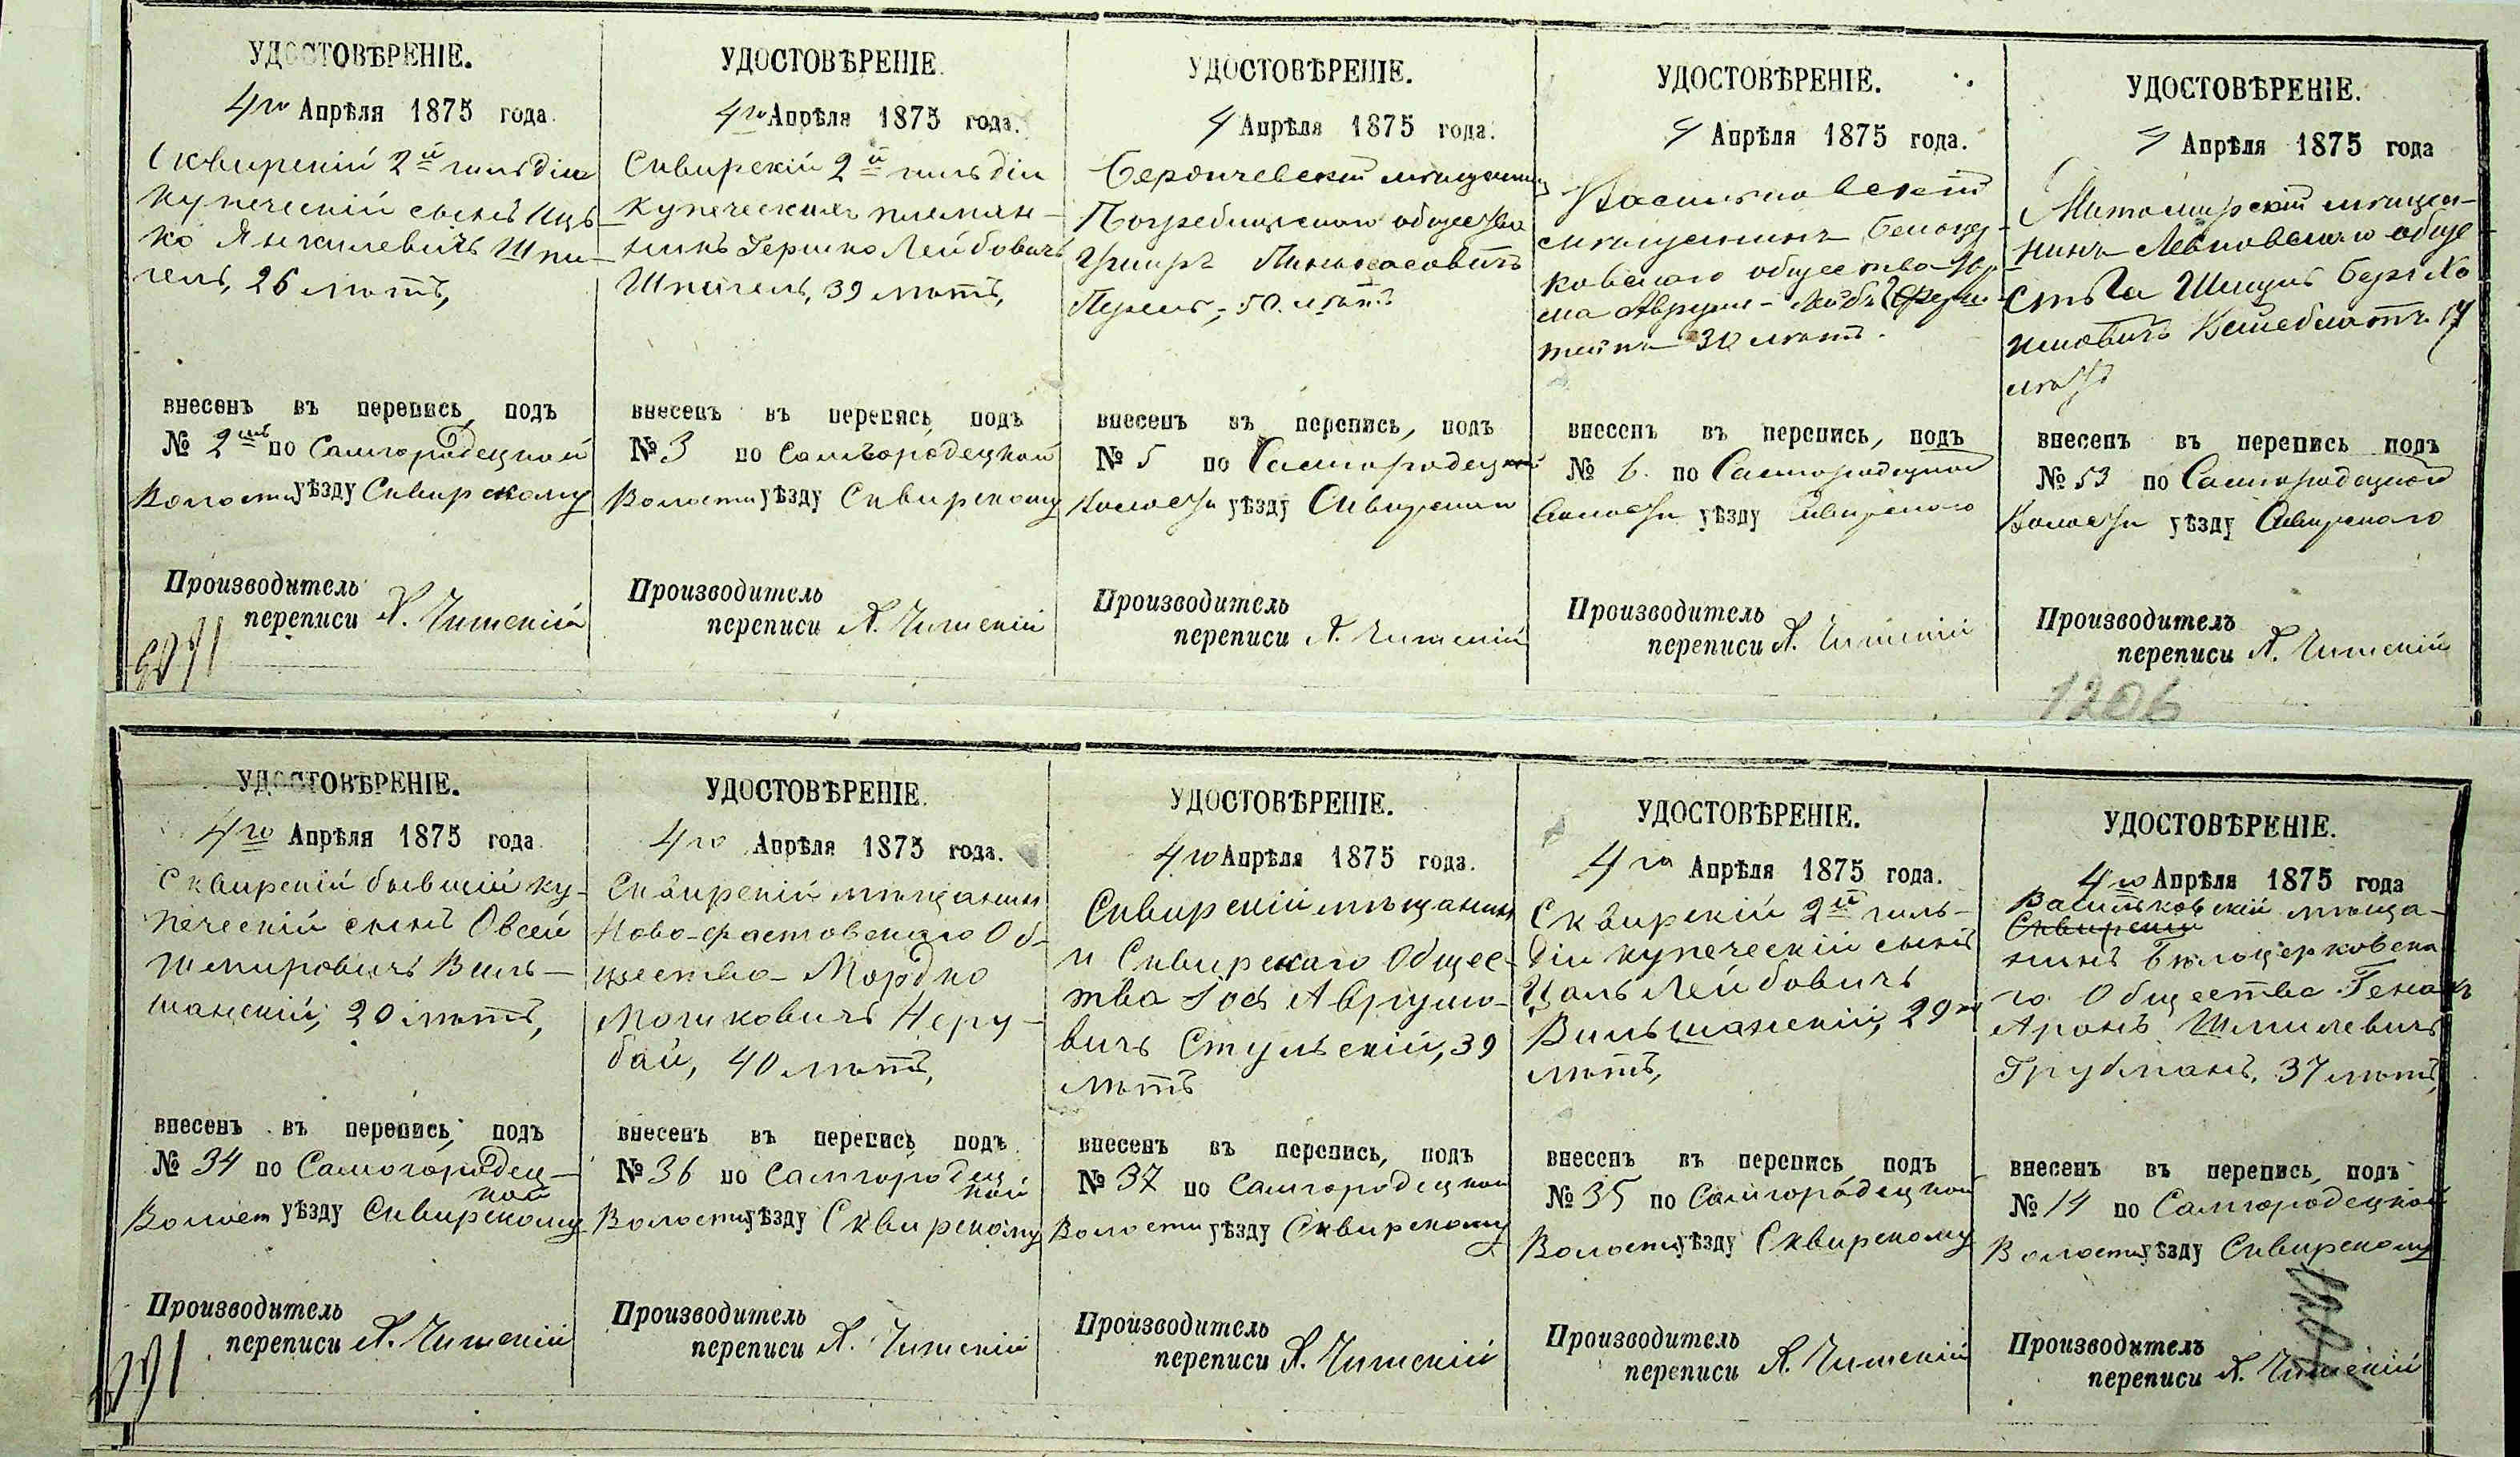 УДОСТОВѢРЕНІЕ.
4го Апрѣля 1875 года.
Сквирскій 2й гильдіи
купеческій сынъ Иць-
ко Янкилевичъ Шпи-
гель, 26 лѣтъ,
внесенъ въ перепись, подъ
№ 2мъ по Самгородецкой
Волости уѣзду Сквирскому
Производитель
переписи А. Чишскій
УДОСТОВѢРЕНІЕ.
4го Апрѣля 1875 года.
Сквирскій 2й гильдіи
купеческій племян-
никъ Гершко Лейбовичъ
Шпигель, 39 лѣтъ,
внесенъ въ перепись, подъ
№ 3 по Самгородецкой
Волости уѣзду Сквирскому
Производитель
переписи А. Чишскій
УДОСТОВѢРЕНІЕ.
4 Апрѣля 1875 года.
Бердичевскій мѣщанинъ
Погребищскаго общества
Пинькасовичъ
50 лѣтъ
внесенъ въ перепись, подъ
№ 5 по Самгородецкой
Волости уѣзду Сквирскому
Производитель
переписи А. Чишскій
УДОСТОВѢРЕНІЕ.
4 Апрѣля 1875 года.
Васильковскій
мѣщанинъ Белоцер-
ковскаго общества
30 лѣтъ.
внесенъ въ перепись, подъ
№ 6. по Самгородецкой
Волости уѣзду Сквирскаго
Производитель
переписи А. Чишскій
УДОСТОВѢРЕНІЕ.
4 Апрѣля 1875 года
Житомирскій мѣщан-
нинъ обще
ства
17
лѣтъ
внесенъ въ перепись подъ
№ 53 по Самгородецкой
Волости уѣзду Сквирскаго
Производитель
переписи А. Чишскій
1206
УДОСТОВѢРЕНІЕ.
4го Апрѣля 1875 года.
Сквирскій бывшій ку-
печескій сынъ Овсей
Шмировичъ Виль-
шанскій, 20 лѣтъ,
внесенъ въ перепись, подъ
№ 34 по Самогородец-
кой
Волост уѣзду Сквирскому
Производитель
переписи А. Чишскій
УДОСТОВѢРЕНІЕ.
4го Апрѣля 1875 года.
Сквирскій мѣщанинъ
Ново-фастовскаго Об-
щества Мордко
Мошковичъ Неру-
бай, 40 лѣтъ,
внесенъ въ перепись, подъ
№ 36 по Самгородец
кой
Волости уѣзду Сквирскому
Производитель
переписи А. Чишскій
УДОСТОВѢРЕНІЕ.
4го Апрѣля 1875 года.
Сквирскій мѣщанинъ
и Сквирскаго Общес-
тва Іосъ Аврумо-
вичъ Стульскій, 39
лѣтъ
внесенъ въ перепись, подъ
№ 37 по Самгородецкой
Волости уѣзду Сквирскому
Производитель
переписи А. Чишскій
УДОСТОВѢРЕНІЕ.
4го Апрѣля 1875 года.
Сквирскій 2й гиль-
діи купеческій сынъ
Цаль Лейбовичъ
Вильшанскій, 29ти
лѣтъ,
внесенъ въ перепись, подъ
№ 35 по Самгородецкой
Волости уѣзду Сквирскому
Производитель
переписи А. Чишскій
УДОСТОВѢРЕНІЕ.
4го Апрѣля 1875 года
Васильковскій мѣща-
Сквирскій
нинъ Бѣлоцерковска
го Общества Генахъ
Аронъ Шмилевичъ
Грубманъ, 37 лѣтъ,
внесенъ въ перепись, подъ
№ 14 по Самгородецкой
Волости уѣзду Сквирскому
Производитель
переписи А. Чишскій